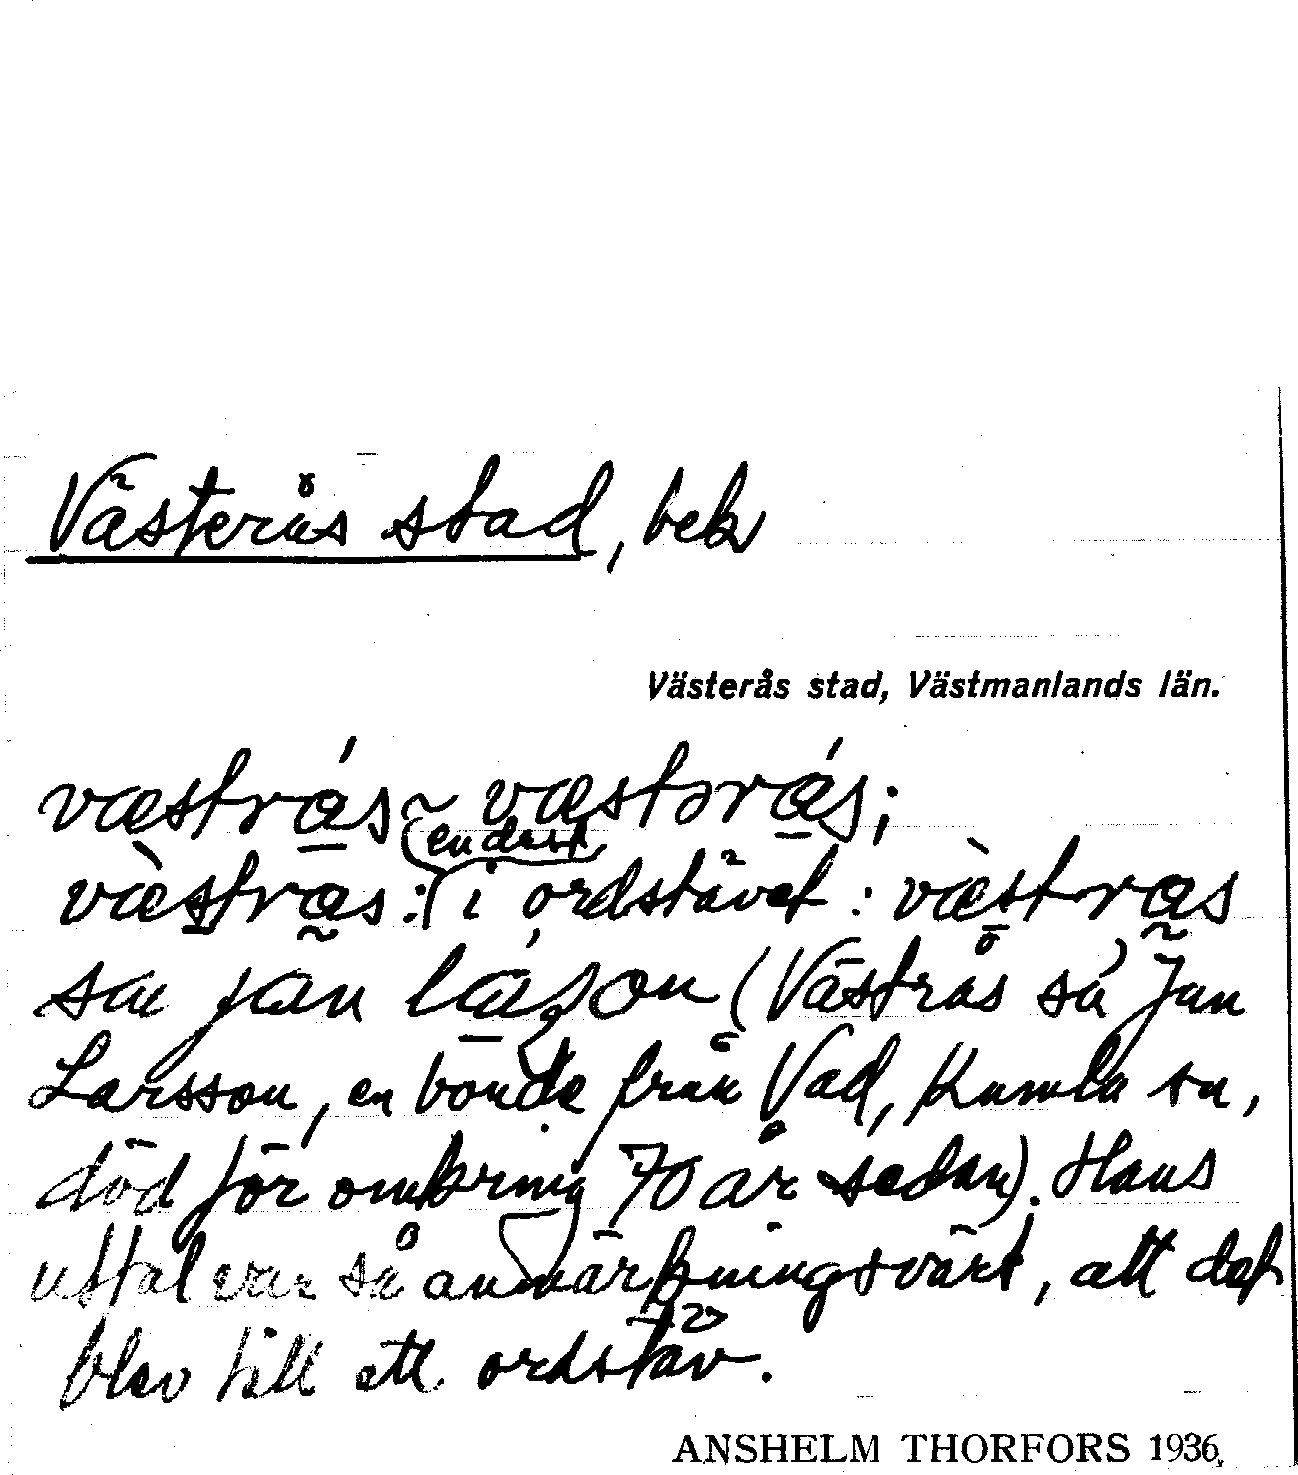 Västerås stad, bek
Västerås stad, Västmanlands län.
væstrás ~ væstərás;
(endast
væ̀stras: i ordstävet: væ̀stras
sa jan lázon (Västrås sa' Jan
Larsson, en bonde från Vad, Kumla sn,
död för omkring 70 år sedan). Hans
uttal var så anmärkningsvärt, att det
blev till ett ordstäv.
ANSHELM THORFORS 1936.